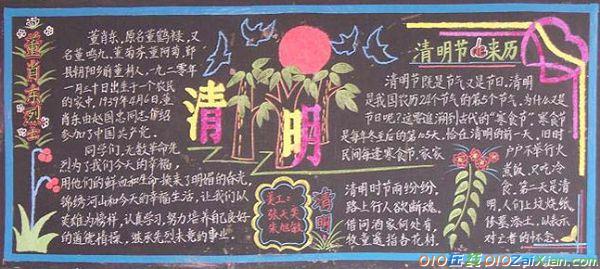 董肖东烈士
董肖东,原名董鹤禄,又
名董鸣九、董菊芬、董阿菊,鄞
县钥阳乡前董村人,一九二零年
一月二十日出生于一个农民
的家中,1939年4月6日,董肖
东由赵国忠同志介绍
参加了中国共产党。
同学们,无数革命先
烈为了我们今天的幸福,
用他们的鲜血和生命换来了明媚的春光,
锦绣河山和今天的幸福生活,让我们以
英雄为榜样,认真学习,努力培养自己良好
的道德情操,继承先烈未竟的事业。
清明
美工:
张大英
朱旭敏
清明
清明时节雨纷纷,
路上行人欲断魂。
借问酒家何处有,
牧童遥指杏花村。
清明节的来历
清明节既是节气又是节日,清明
是我国农历24个节气的第5个节气,为什么又是
节日呢?这需追溯到古代的“寒食节”,寒食节
是每年冬至后的第105天,恰在清明的前一天,旧时
民间每逢寒食节,家家
户户不举行火
煮饭,只吃冷
食。第二天是清
明,人们上坟烧纸
修墓添土,以表示
对亡者的怀念。
010在线010ZaiXian.com